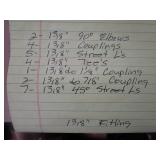 2- 1 3/8" 90° Elbows
4- 1 3/8" Couplings
5- 1 3/8" Street Ls
4- 1 3/8" Tee's
1- 1 3/8 to 1 1/8" Coupling
2- 1 3/8" to 7/8" Coupling
7- 1 3/8" 45° Street Ls
1 3/8" Fitting